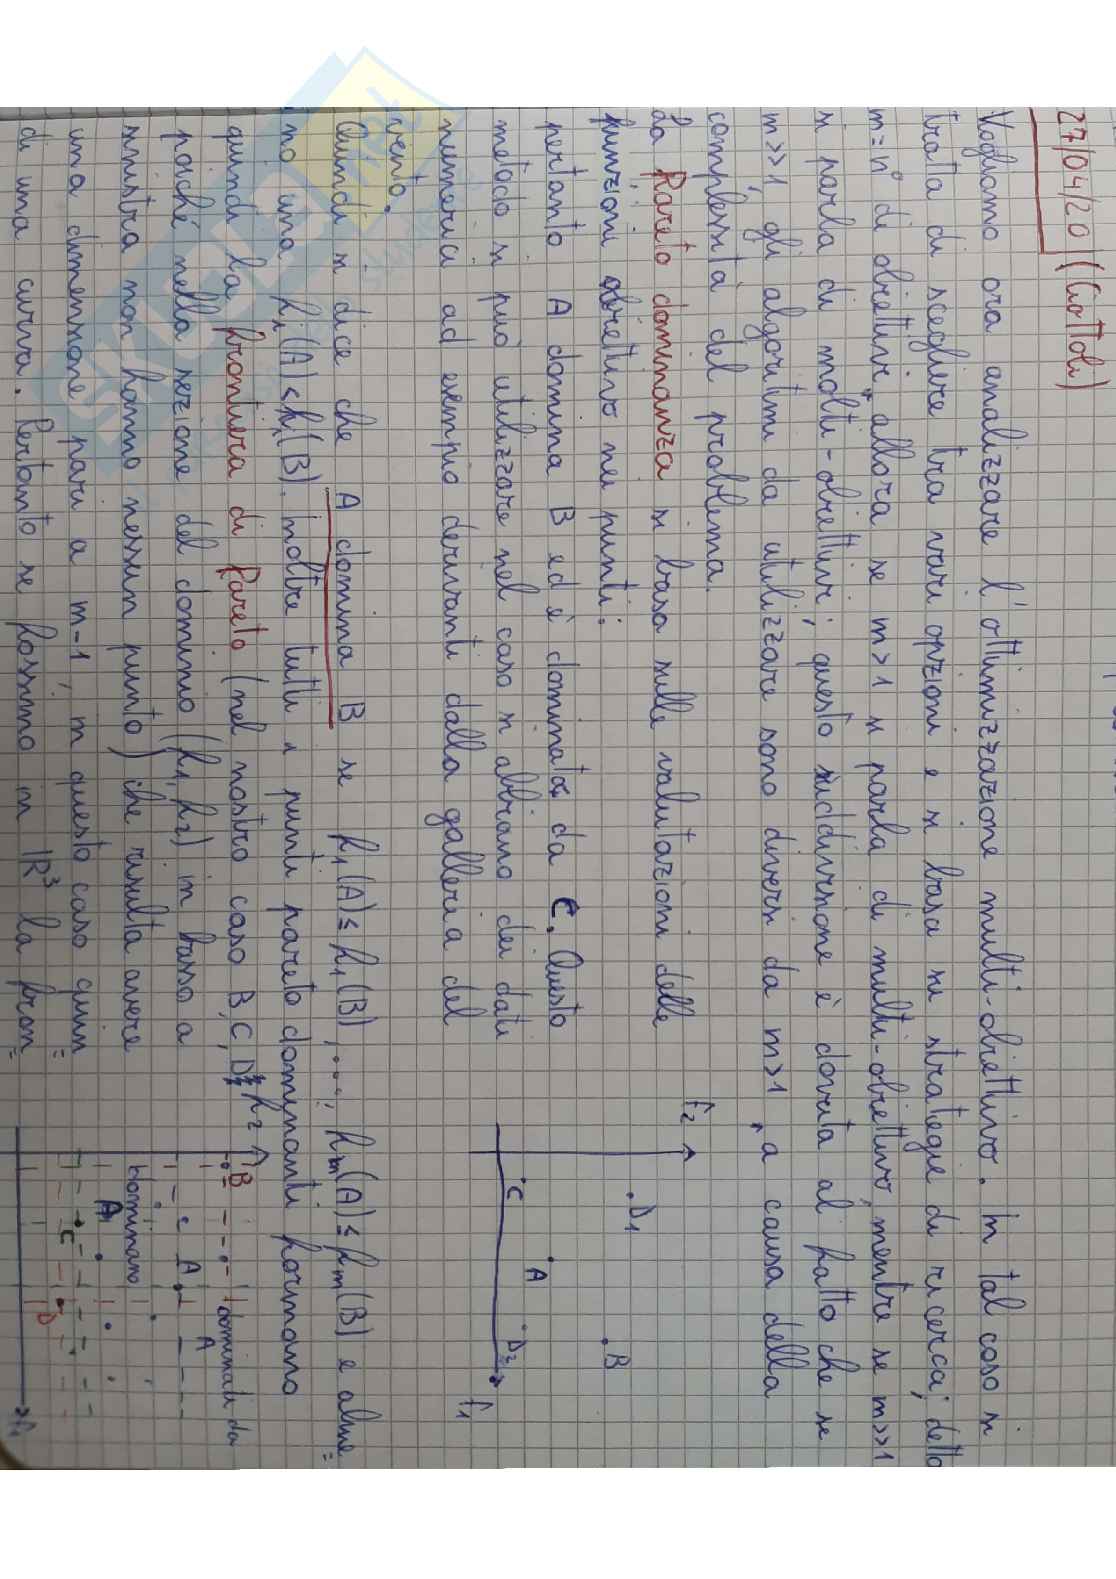 27/04/20 (Ciottoli)
Vogliamo ora analizzare l'ottimizzazione multi-obiettivo. In tal caso si
tratta di scegliere tra vari opzioni e si basa su strategie di ricerca; detto
m=n° di obiettivi, allora se m>1 si parla di multi-obiettivo, mentre se m>>1
si parla di molti-obiettivi; questo suddivisione è dovuta al fatto che se
m>>1, gli algoritmi da utilizzare sono diversi da m>1, a causa della
complessità del problema.
La Pareto dominanza si basa sulle valutazioni delle
funzioni obiettivo nei punti:
pertanto A domina B ed è dominata da C. Questo
metodo si può utilizzare nel caso si abbiano dei dati
numerici ad esempio derivanti dalla galleria del
vento.
f2
D1
C
A
B
D2
f1
Quindi si dice che A domina B se f1(A)≤f1(B),...., fm(A)≤fm(B) e alme=
no una fi(A)<fi(B). Inoltre tutti i punti pareto dominanti formano
quindi la frontiera di Pareto (nel nostro caso B, C, D
poiché nella sezione del dominio (f1, f2) in basso a
sinistra non hanno nessun punto) che risulta avere
una dimensione pari a m-1, in questo caso quin=
di una curva. Pertanto se fossimo in ℝ³ la fron=
f2
B
dominati da
A
C
A
dominano
A
C
D
f1
SKUOLA